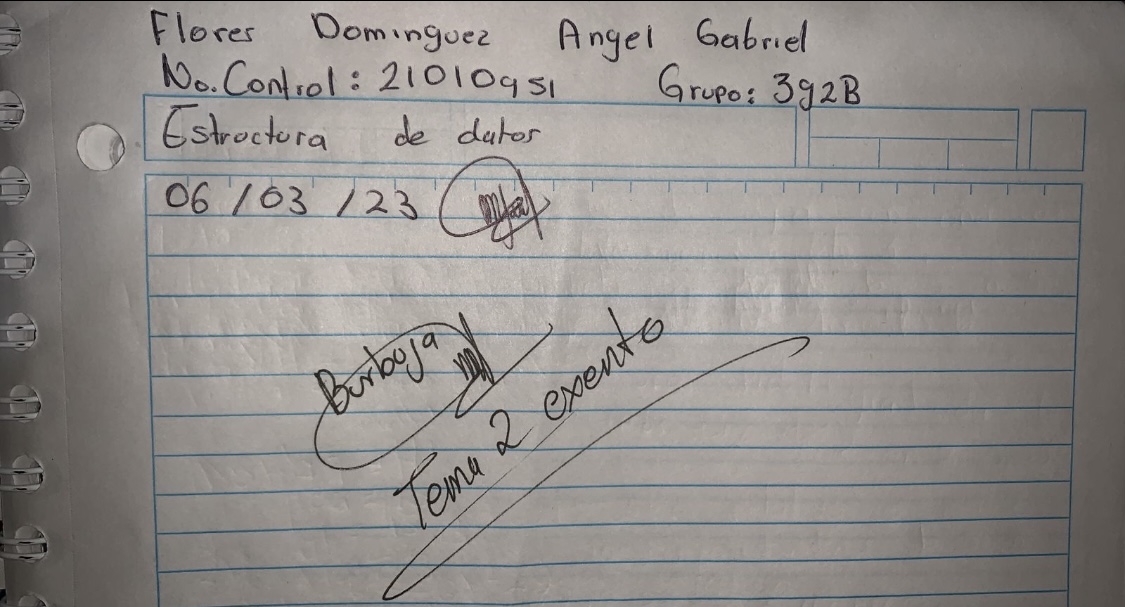 Flores Dominguez Angel Gabriel
No. Control: 21010951 Grupo: 3g2B
Estructura de datos
06/03/23
Burbuja
Tema 2 exento